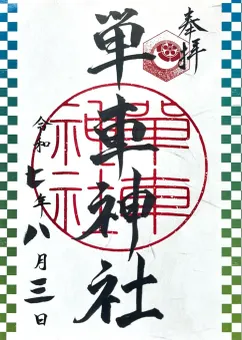 奉拝
単車神社
単車
神社
令和七年八月三日